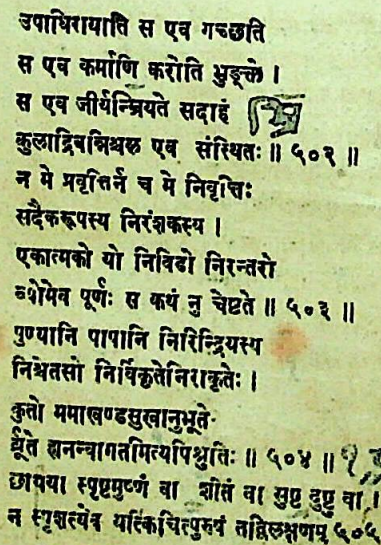 उपाधिरायाति स एव गच्छति
स एव कर्माणि करोति भुङ्क्ते ।
स एव जीर्यन्म्रियते सदाहं
कुलाद्रिवन्निश्चल एव संस्थितः ॥ ५०२ ॥
न मे प्रवृत्तिर्न च मे निवृत्तिः
सदैकरूपस्य निरंशकस्य ।
एकात्मको यो निविडो निरन्तरो
व्योमेव पूर्णः स कथं नु चेष्टते ॥ ५०३ ॥
पुण्यानि पापानि निरिन्द्रियस्य
निश्चेतसो निर्विकृतेर्निराकृतेः ।
कुतो ममाखण्डसुखानुभूते-
र्ब्रूते ह्यनन्वागतमित्यपि श्रुतिः ॥ ५०४ ॥
छायया स्पृष्टमुष्णं वा शीतं वा सुष्ठु दुष्ठु वा ।
न स्पृशत्येव यत्किंचित्पुरुषं तद्विलक्षणम् ५०५